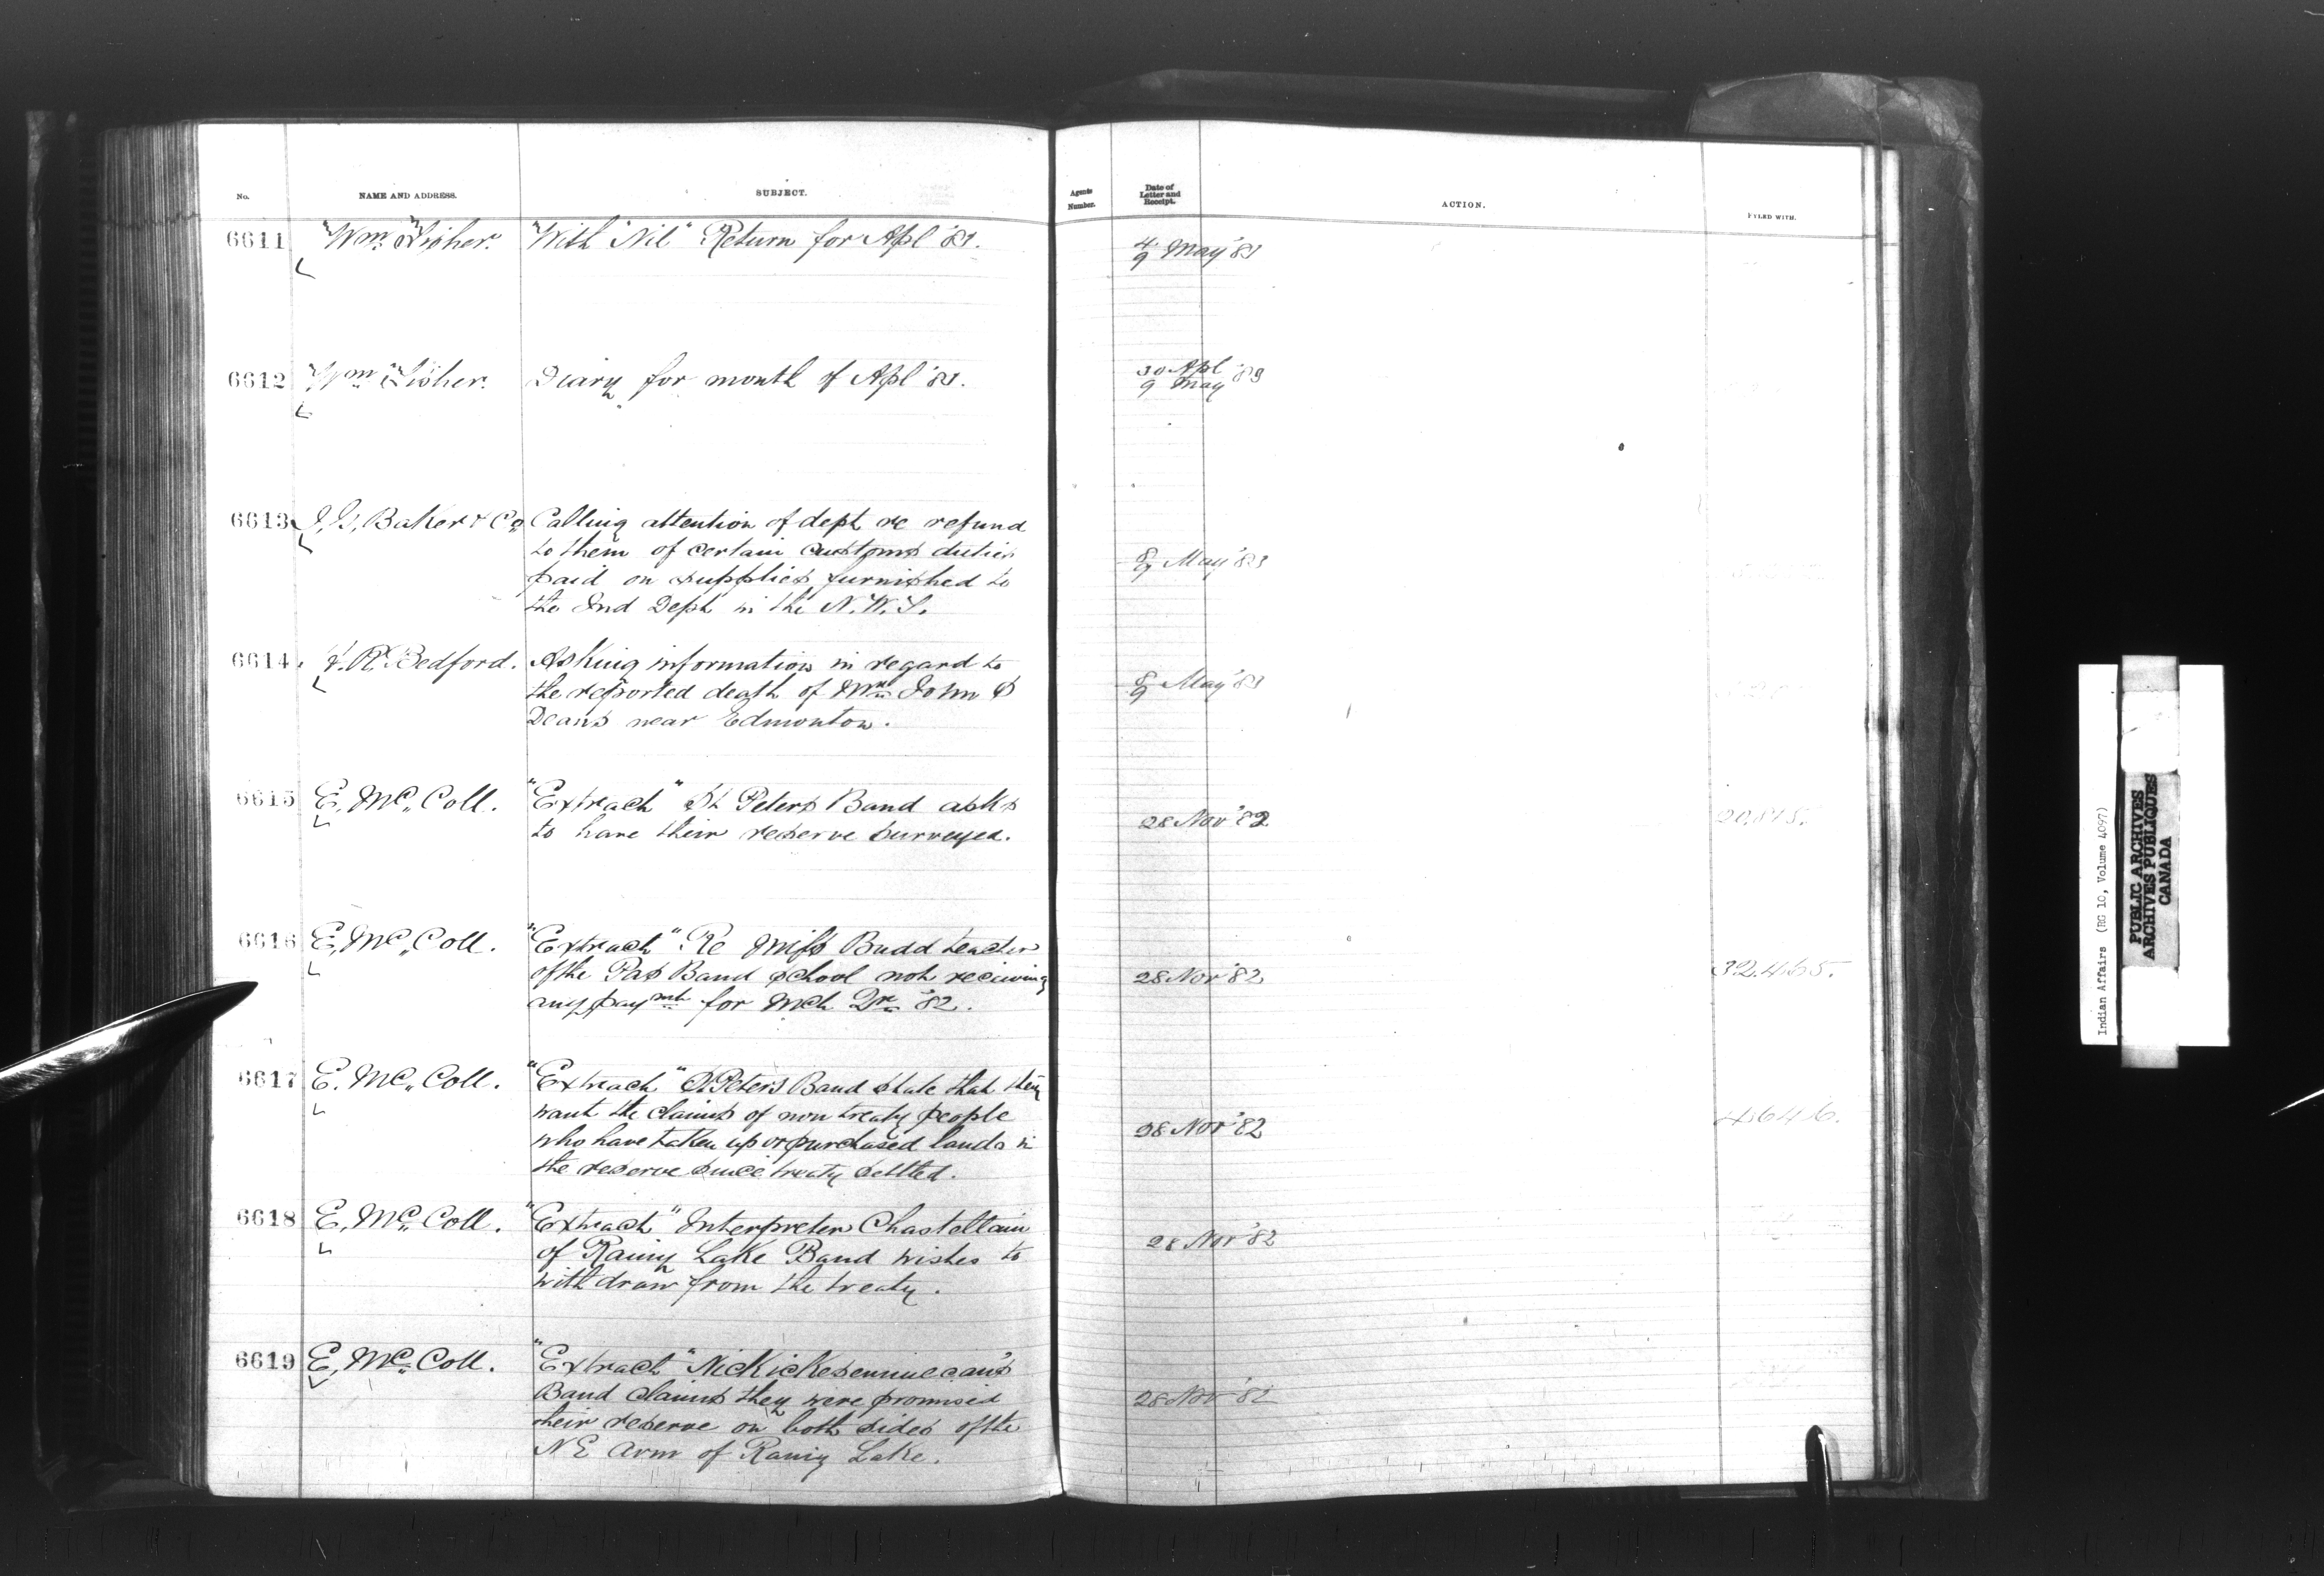 No.
NAME AND ADDRESS.
SUBJECT.
Agents Number.
Date of Letter and Receipt.
ACTION.
FYLED WITH.
6611 Wm. Fisher. "With "Nil" Return for Apl '83. 4/9 May '83
6612 Wm. Fisher. Diary for month of Apl '83. 30 Apl / 9 May '83
6613 I. G. Baker & Co Calling attention of dept re refund
to them of certain customs duties
paid on supplies furnished to 8/9 May '83
the Ind Dept in the N.W.T.
6614 R. Bedford. Asking information in regard to
the reported death of Mr. John S 8/9 May '83
Deans near Edmonton.
6615 E. Mc. Coll. "Extract" St Peters Band asks
to have their reserve surveyed. 28 Nov '82
6616 E. Mc. Coll. "Extract" Re Miss Budd teacher
of the Pas Band school not receiving 28 Nov '82 32,465.
any paymt for Mch Qr '82.
6617 E. Mc. Coll. "Extract" St Peters Band state that they
want the claims of non treaty people
who have taken up or purchased lands in 28 Nov '82
the reserve since treaty settled.
6618 E. Mc. Coll. "Extract" Interpreter Chastellain
of Rainy Lake Band wishes to 28 Nov '82
withdraw from the treaty.
6619 E. Mc. Coll. "Extract" Nickickesemenecan's
Band claims they were promised
their reserve on both sides of the 28 Nov '82
N E Arm of Rainy Lake.
Indian Affairs (RG 10, Volume 4097)
PUBLIC ARCHIVES
ARCHIVES PUBLIQUES
CANADA